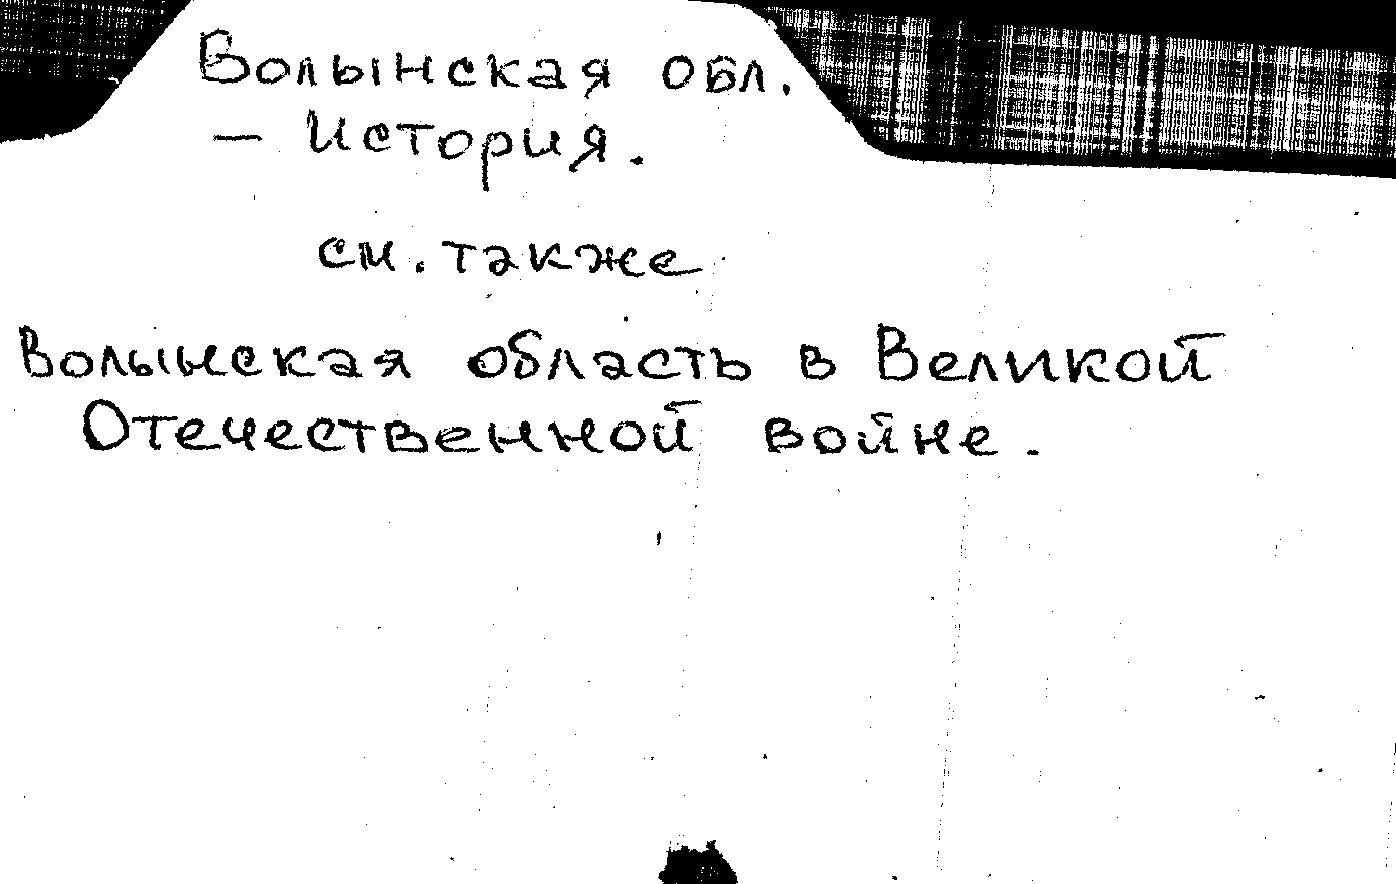 Волынская обл.
— История.
см. также
Волынская область в Великой
Отечественной войне.